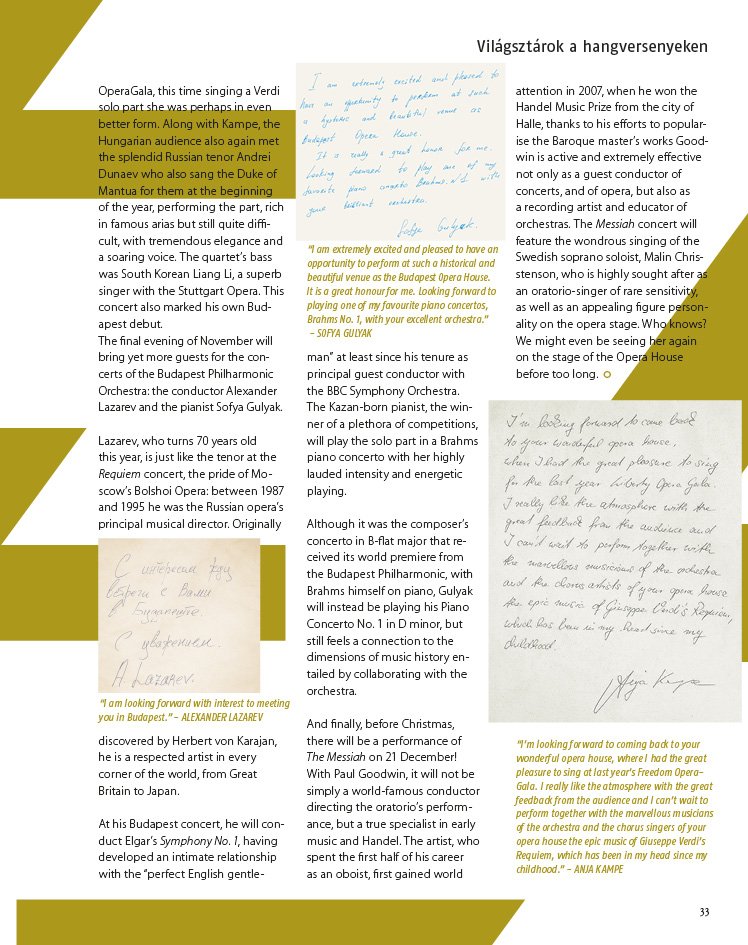 Világsztárok a hangversenyeken
OperaGala, this time singing a Verdi
solo part she was perhaps in even
better form. Along with Kampe, the
Hungarian audience also again met
the splendid Russian tenor Andrei
Dunaev who also sang the Duke of
Mantua for them at the beginning
of the year, performing the part, rich
in famous arias but still quite diffi-
cult, with tremendous elegance and
a soaring voice. The quartet's bass
was South Korean Liang Li, a superb
singer with the Stuttgart Opera. This
concert also marked his own Bud-
apest debut.
The final evening of November will
bring yet more guests for the con-
certs of the Budapest Philharmonic
Orchestra: the conductor Alexander
Lazarev and the pianist Sofya Gulyak.
Lazarev, who turns 70 years old
this year, is just like the tenor at the
Requiem concert, the pride of Mo-
scow's Bolshoi Opera: between 1987
and 1995 he was the Russian opera's
principal musical director. Originally
С интересом жду
встречи с Вами
в Будапеште.
С уважением.
A. Lazarev.
"I am looking forward with interest to meeting
you in Budapest." – ALEXANDER LAZAREV
discovered by Herbert von Karajan,
he is a respected artist in every
corner of the world, from Great
Britain to Japan.
At his Budapest concert, he will con-
duct Elgar's Symphony No. 1, having
developed an intimate relationship
with the "perfect English gentle-
I am extremely excited and pleased to
have an opportunity to perform at such
a hystoric and beautiful venue as
Budapest Opera House.
It is really a great honor for me.
Looking forward to play one of my
favorite piano concerto Brahms N1 with
your brilliant orchestra.
Sofya Gulyak.
"I am extremely excited and pleased to have an
opportunity to perform at such a historical and
beautiful venue as the Budapest Opera House.
It is a great honour for me. Looking forward to
playing one of my favourite piano concertos,
Brahms No. 1, with your excellent orchestra."
– SOFYA GULYAK
man" at least since his tenure as
principal guest conductor with
the BBC Symphony Orchestra.
The Kazan-born pianist, the win-
ner of a plethora of competitions,
will play the solo part in a Brahms
piano concerto with her highly
lauded intensity and energetic
playing.
Although it was the composer's
concerto in B-flat major that re-
ceived its world premiere from
the Budapest Philharmonic, with
Brahms himself on piano, Gulyak
will instead be playing his Piano
Concerto No. 1 in D minor, but
still feels a connection to the
dimensions of music history en-
tailed by collaborating with the
orchestra.
And finally, before Christmas,
there will be a performance of
The Messiah on 21 December!
With Paul Goodwin, it will not be
simply a world-famous conductor
directing the oratorio's perform-
ance, but a true specialist in early
music and Handel. The artist, who
spent the first half of his career
as an oboist, first gained world
attention in 2007, when he won the
Handel Music Prize from the city of
Halle, thanks to his efforts to popular-
ise the Baroque master's works Good-
win is active and extremely effective
not only as a guest conductor of
concerts, and of opera, but also as
a recording artist and educator of
orchestras. The Messiah concert will
feature the wondrous singing of the
Swedish soprano soloist, Malin Chris-
stenson, who is highly sought after as
an oratorio-singer of rare sensitivity,
as well as an appealing figure person-
ality on the opera stage. Who knows?
We might even be seeing her again
on the stage of the Opera House
before too long.
I'm looking forward to come back
to your wonderful opera house,
when I had the great pleasure to sing
for the last year Liberty Opera Gala.
I really like the atmosphere with the
great feedback from the audience and
I can't wait to perform together with
the marvellous musicians of the orchestra
and the chorus artists of your opera house
the epic music of Giuseppe Verdi's Requiem,
which has been in my heart since my
childhood.
Anja Kampe
"I'm looking forward to coming back to your
wonderful opera house, where I had the great
pleasure to sing at last year's Freedom Opera–
Gala. I really like the atmosphere with the great
feedback from the audience and I can't wait to
perform together with the marvellous musicians
of the orchestra and the chorus singers of your
opera house the epic music of Giuseppe Verdi's
Requiem, which has been in my head since my
childhood." – ANJA KAMPE
33